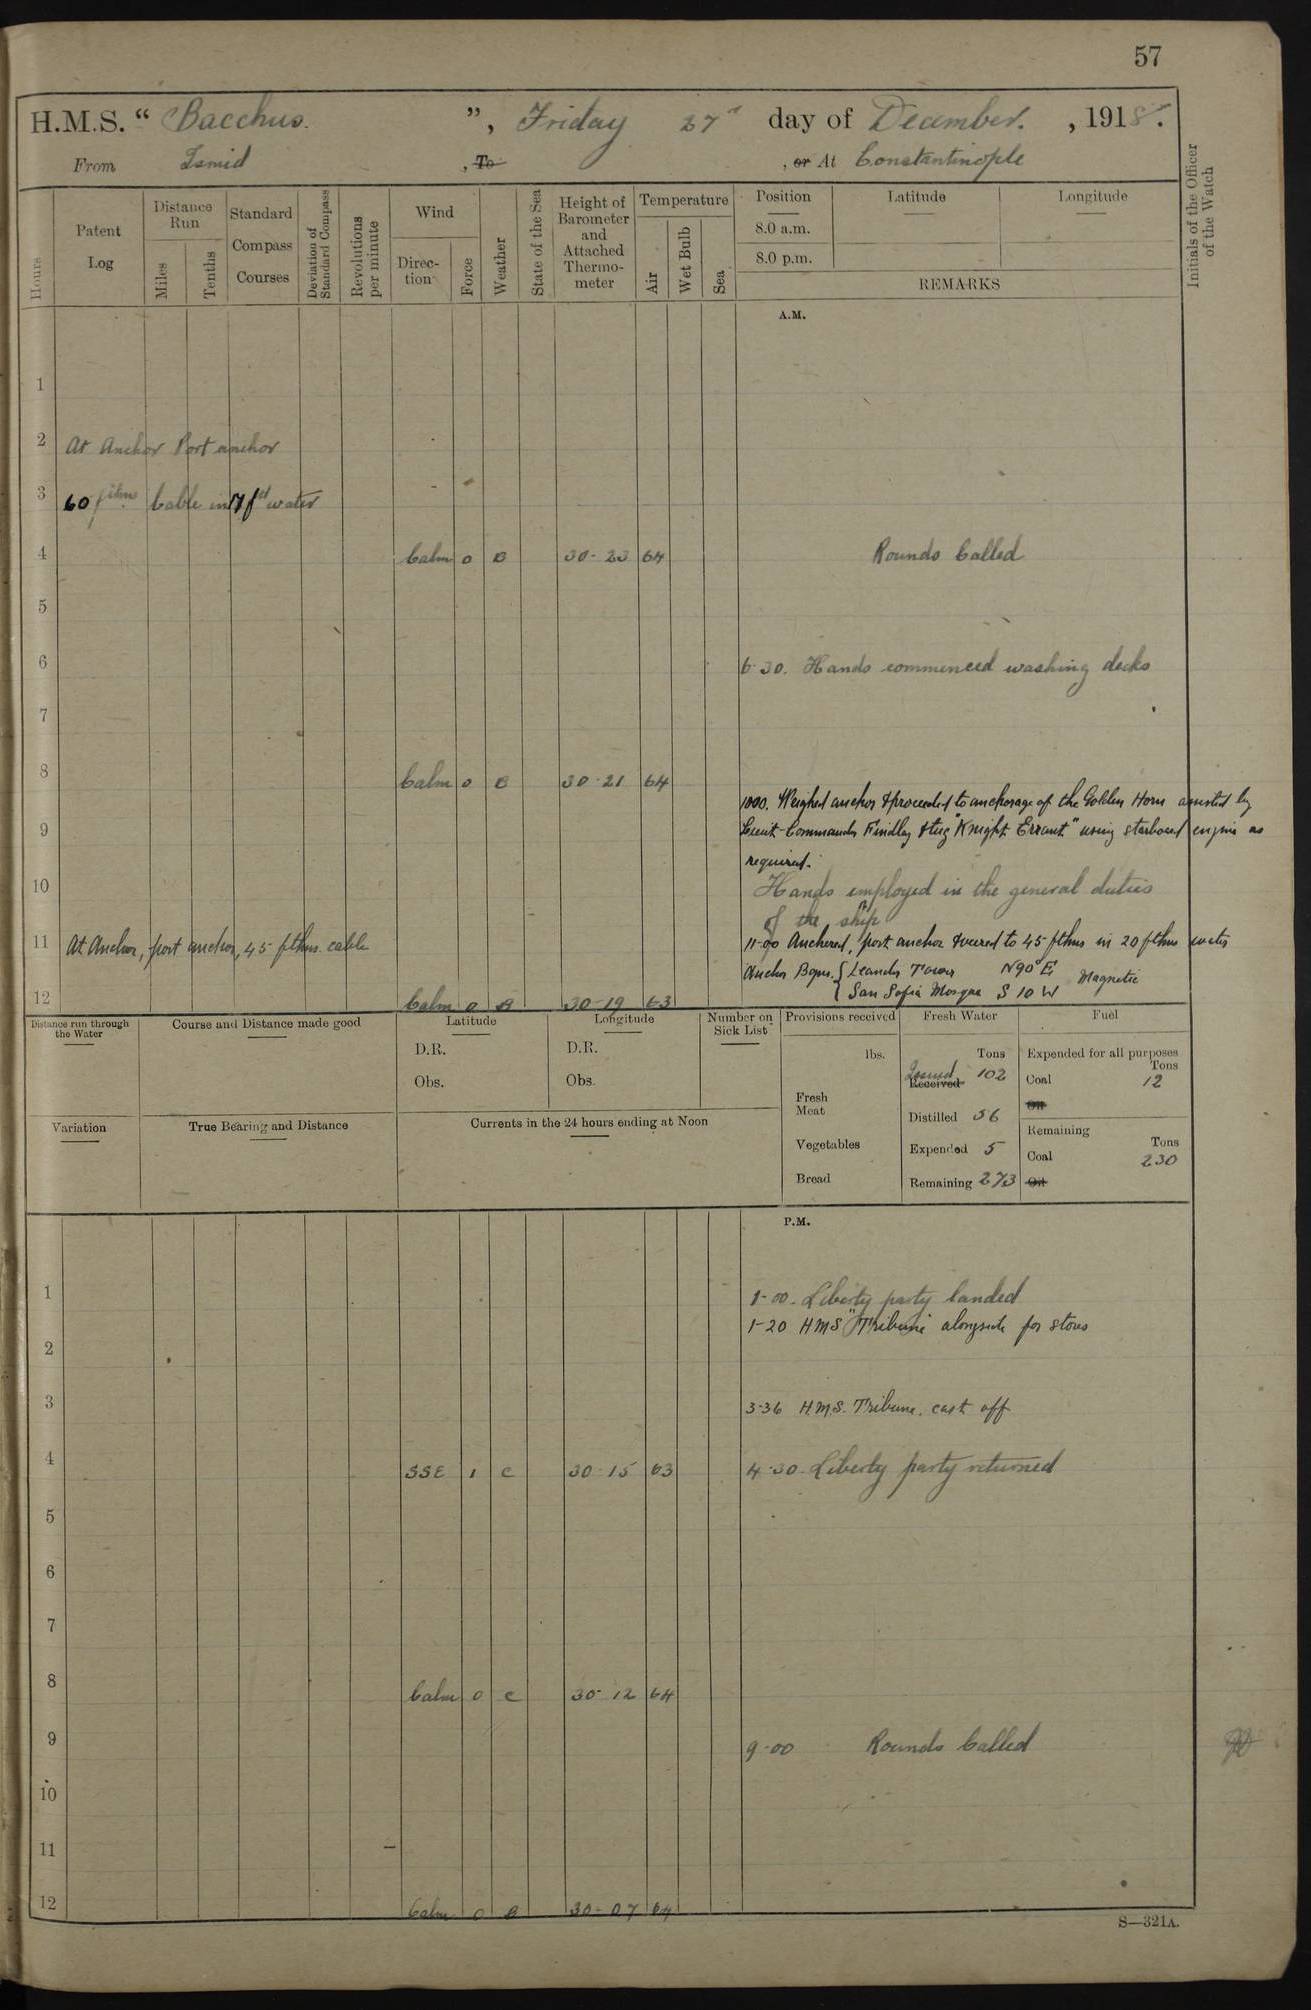 57
H.M.S. " Bacchus. ", Friday 27th day of December. , 1918.
From Ismid , To , or At Constantinople
Hours
Patent Log
Distance Run
Miles
Tenths
Standard Compass Courses
Deviation of Standard Compass
Revolutions per minute
Wind
Direction
Force
Weather
State of the Sea
Height of Barometer and Attached Thermometer
Temperature
Air
Wet Bulb
Sea
Position
8.0 a.m.
8.0 p.m.
Latitude
Longitude
REMARKS
Initials of the Officer of the Watch
A.M.
1
2 At Anchor Port anchor
3 60 fthms Cable in water
4 Calm 0 B 30-23 64 Rounds Called
5
6 6-30. Hands commenced washing decks
7
8 Calm 0 B 30-21 64
1000. Weighed anchor & proceeded to anchorage of the Golden Horn assisted by
9 Lieut-Commander Findlay & tug "Knight Errant" using starboard engine as
required.
10 Hands employed in the general duties
of the ship
11 At Anchor, port anchor, 45 fthms. cable 11-00 Anchored, port anchor & veered to 45 fthms in 20 fthms water
Anchor Bgns. { Leander Tower N90°E Magnetic
San Sofia Mosque S 10 W
12 Calm 0 B 30-19 63
Distance run through the Water
Course and Distance made good
Latitude
D.R.
Obs.
Longitude
D.R.
Obs.
Number on Sick List
Provisions received
lbs.
Fresh Meat
Vegetables
Bread
Fresh Water
Tons
Issued
Received 102
Distilled 56
Expended 5
Remaining 273
Fuel
Expended for all purposes
Tons
Coal 12
Oil
Remaining
Tons
Coal 230
Oil
Variation
True Bearing and Distance
Currents in the 24 hours ending at Noon
P.M.
1 1-00. Liberty party landed
1-20 HMS "Tribune" alongside for stores
2
3 3-36 H.M.S. Tribune. cast off
4 SSE 1 C 30-15 63 4-30. Liberty party returned
5
6
7
8 Calm 0 C 30-12 64
9 9-00 Rounds Called
10
11
12 Calm 0 B 30-07 64
S—321A.